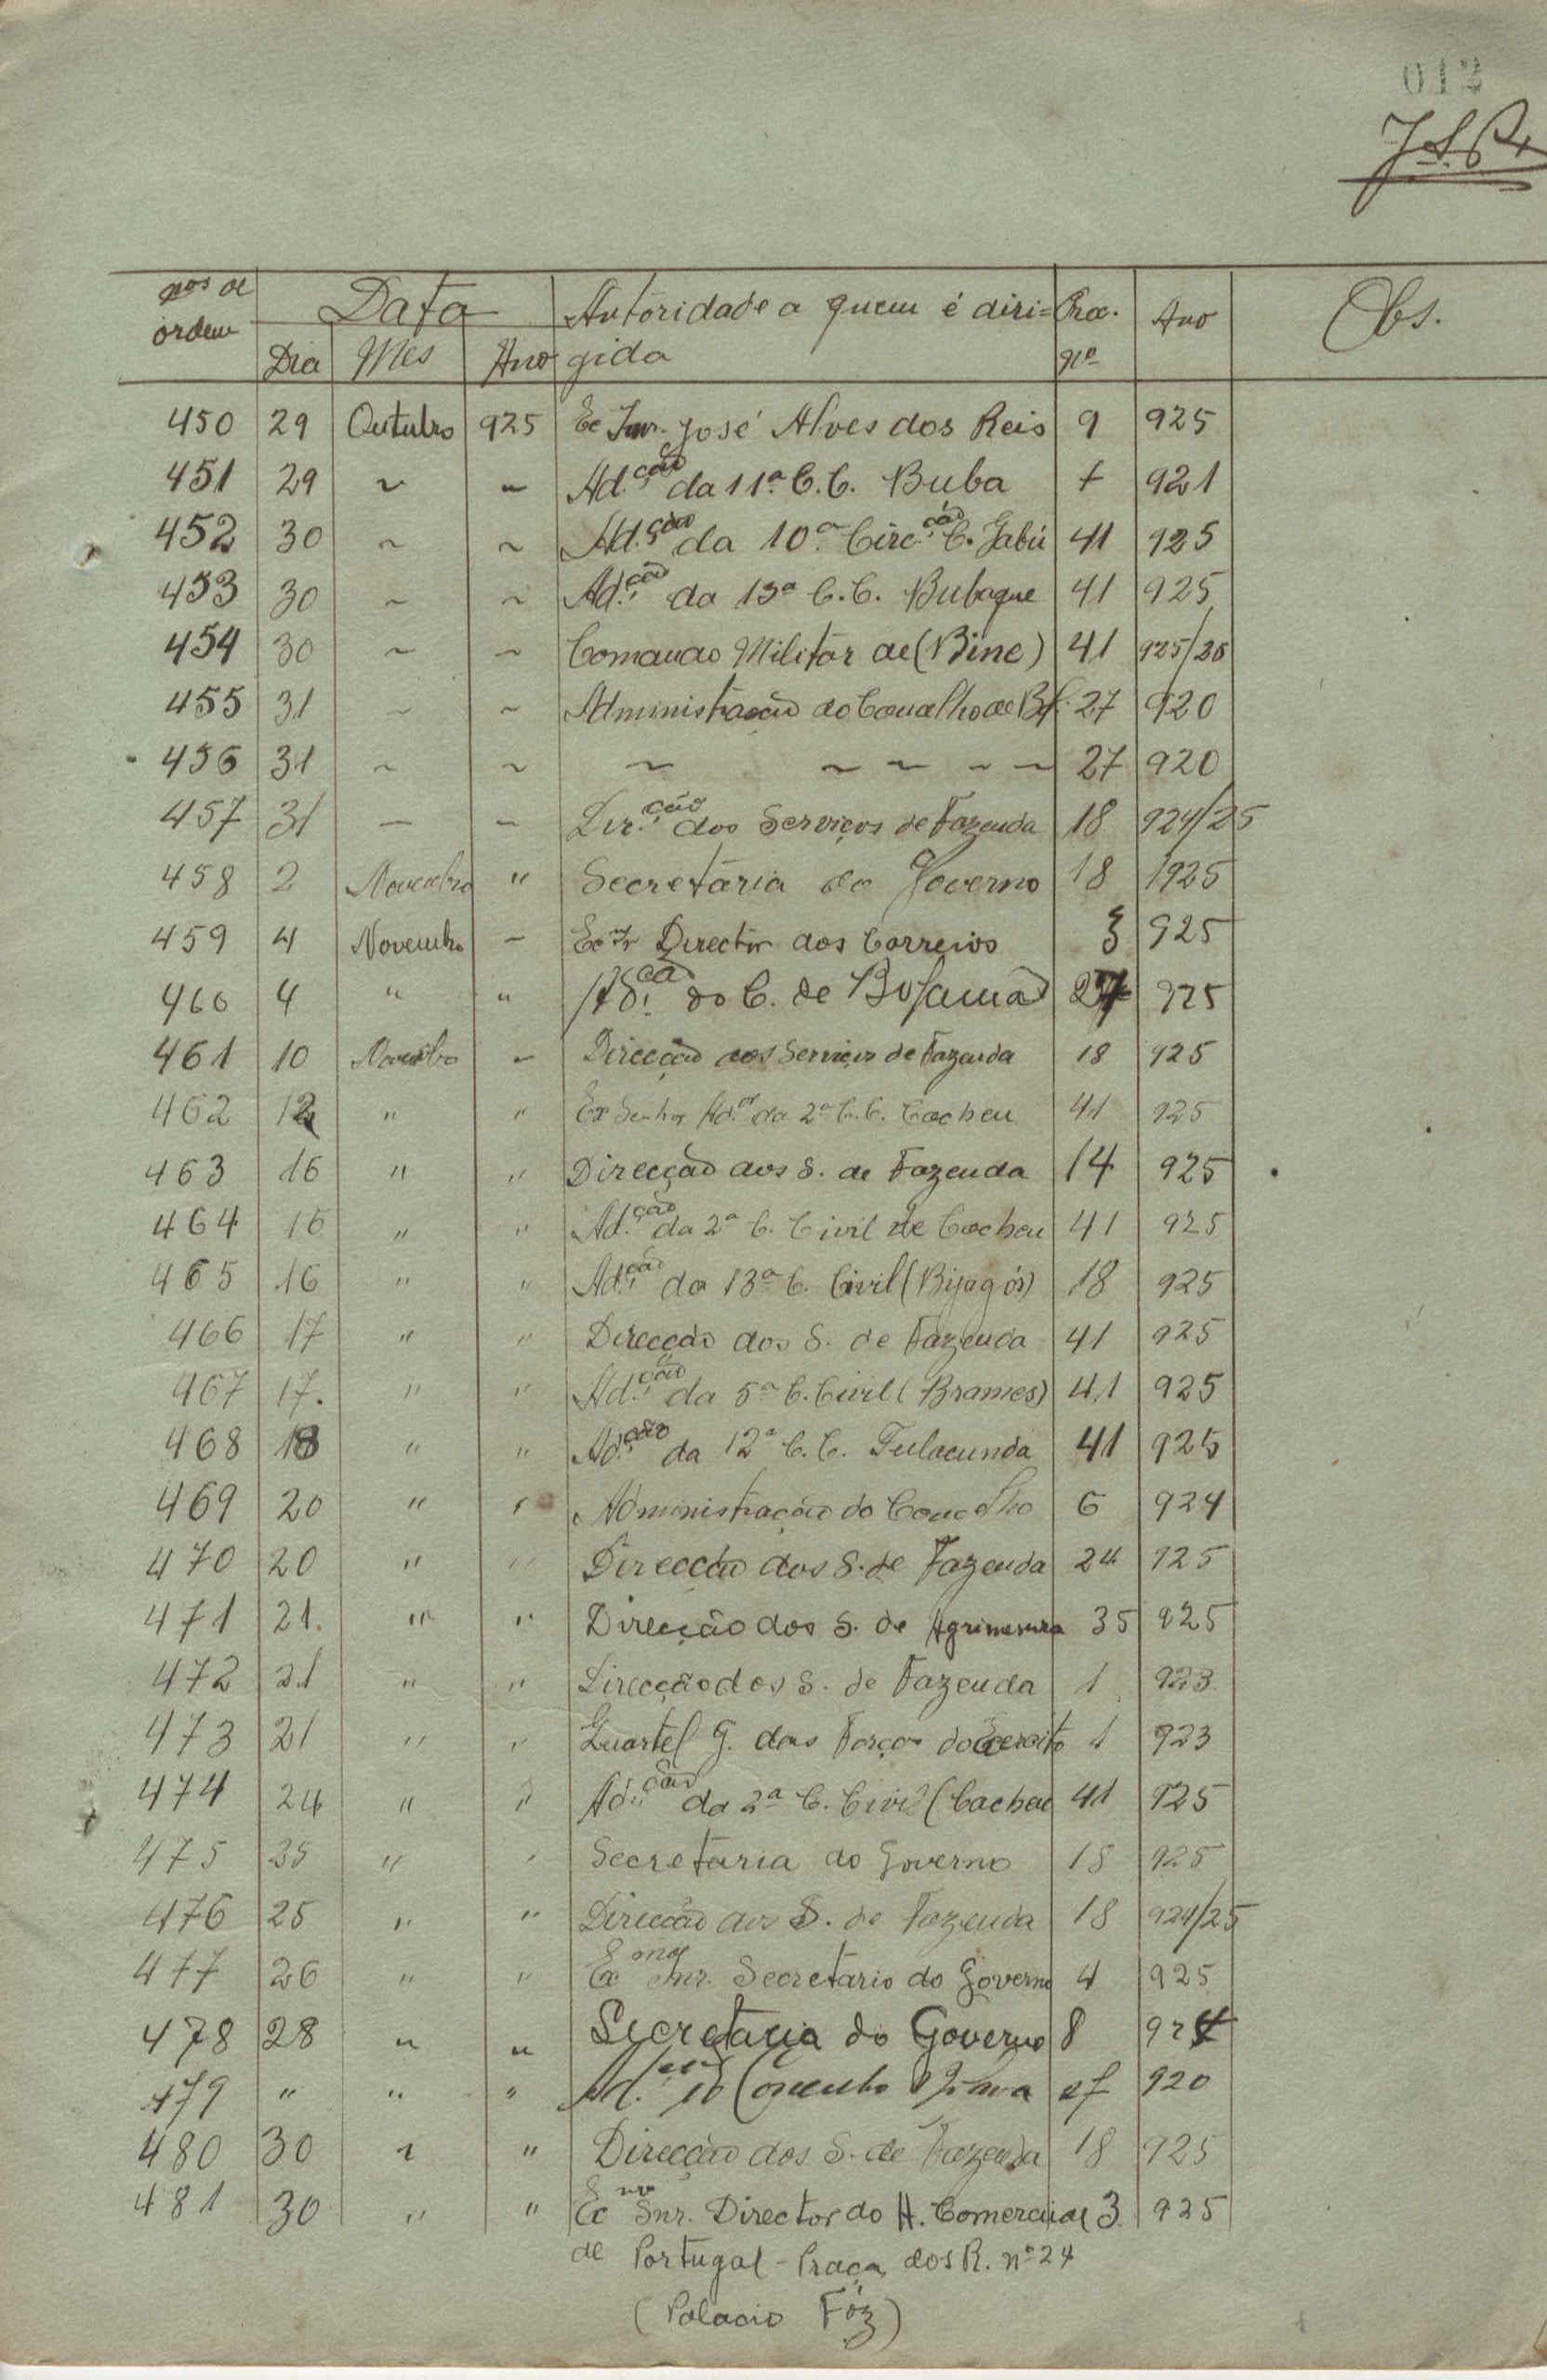 012
nos de ordem Data Autoridade a quem é diri= Proc. Ano Obs.
Dia Mes Ano gida nº
450 29 Outubro 925 Ex Snr. José Alves dos Reis 9 925
451 29 ~ ~ Ad.ção da 11ª C.C. Buba 921
452 30 ~ ~ Ad.ção da 10ª Circ.ção C. Gabú 41 925
453 30 ~ ~ Ad.ção da 13ª C.C. Bubaque 41 925
454 30 ~ ~ Comando Militar de (Bine) 41 925/26
455 31 ~ ~ Administração do Concelho de 27 920
456 31 ~ ~ ~ ~ ~ ~ ~ 27 920
457 31 — ~ Dir.ção dos Serviços de Fazenda 18 924/25
458 2 Novembro " Secretaria do Governo 18 1925
459 4 Novembro ~ Director dos Correios 3 925
460 4 " " Ad.ção do C. de Bolama 27 925
461 10 Novembro ~ Direcção dos Serviços de Fazenda 18 925
462 12 " " Ex Senhor Ad.or da 2ª C.C. Cacheu 41 925
463 16 " " Direcção dos S. de Fazenda 14 925
464 16 " " Ad.ção da 2ª C. Civil de Cacheu 41 925
465 16 " " Ad.ção da 13ª C. Civil (Bijagós) 18 925
466 17 " " Direcção dos S. de Fazenda 41 925
467 17. " " Ad.ção da 5ª C. Civil (Brames) 41 925
468 18 " " Ad.ção da 12ª C.C. Fulacunda 41 925
469 20 " " Administração do Concelho 6 924
470 20 " " Direcção dos S. de Fazenda 24 925
471 21. " " Direcção dos S. de Agrimensura 35 925
472 21 " " Direcção dos S. de Fazenda 1 923
473 21 " " Quartel G. das Forças do Exercito 1 923
474 24 " " Ad.ção da 2ª C. Civil (Cacheu 41 925
475 25 " " Secretaria do Governo 18 925
476 25 " " Direcção dos S. de Fazenda 18 924/25
477 26 " " Ex mo Snr. Secretario do Governo 4 925
478 28 " " Secretaria do Governo 8 924
479 " " " 920
480 30 " " Direcção dos S. de Fazenda 18 925
481 30 " " Ex mo Snr. Director do A. Comercial 3 925
de Portugal - Praça dos R. nº 24
(Palacio Fôz)